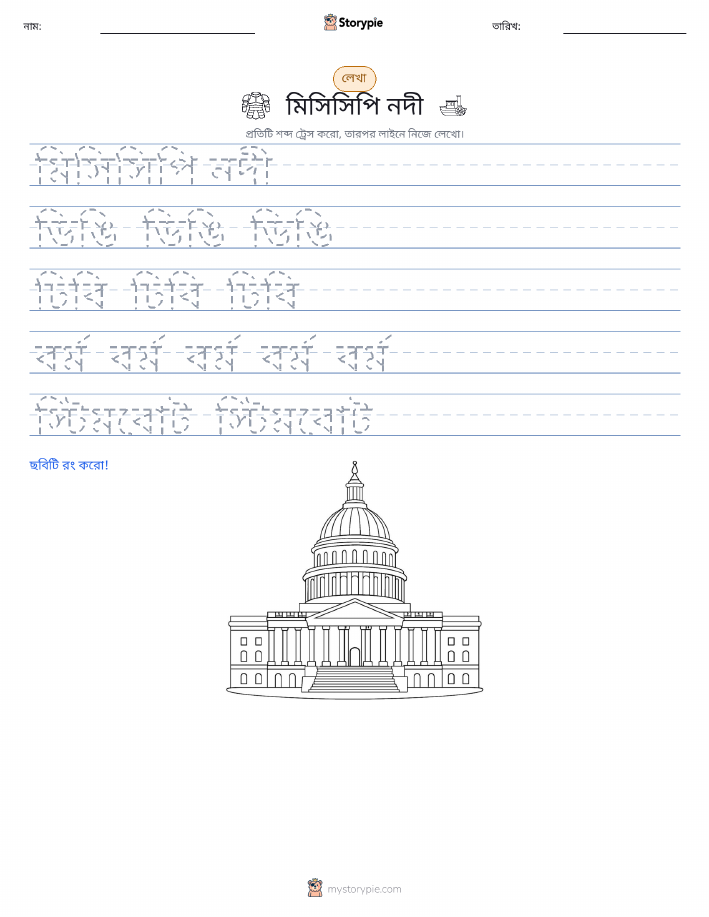 নাম:
Storypie
তারিখ:
লেখা
মিসিসিপি নদী
প্রতিটি শব্দ ট্রেস করো, তারপর লাইনে নিজে লেখো।
মিসিসিপি নদী
ডিঙি ডিঙি ডিঙি
ঢিবি ঢিবি ঢিবি
বর্ম বর্ম বর্ম বর্ম বর্ম
স্টিমবোট স্টিমবোট
ছবিটি রং করো!
mystorypie.com